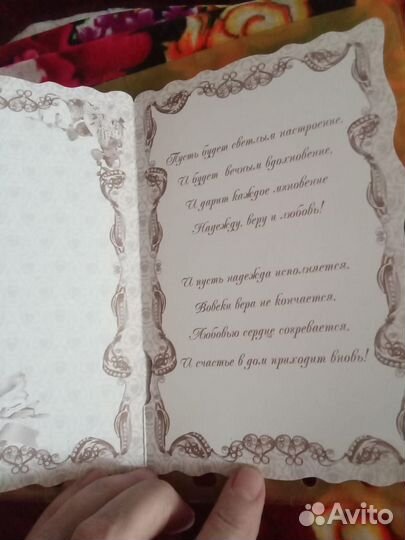 Пусть будет светлым настроение,
И будет вечным вдохновение,
И дарит каждое мгновение
Надежду, веру и любовь!
И пусть надежда исполняется,
Вовеки вера не кончается,
Любовью сердце согревается,
И счастье в дом приходит вновь!
Avito